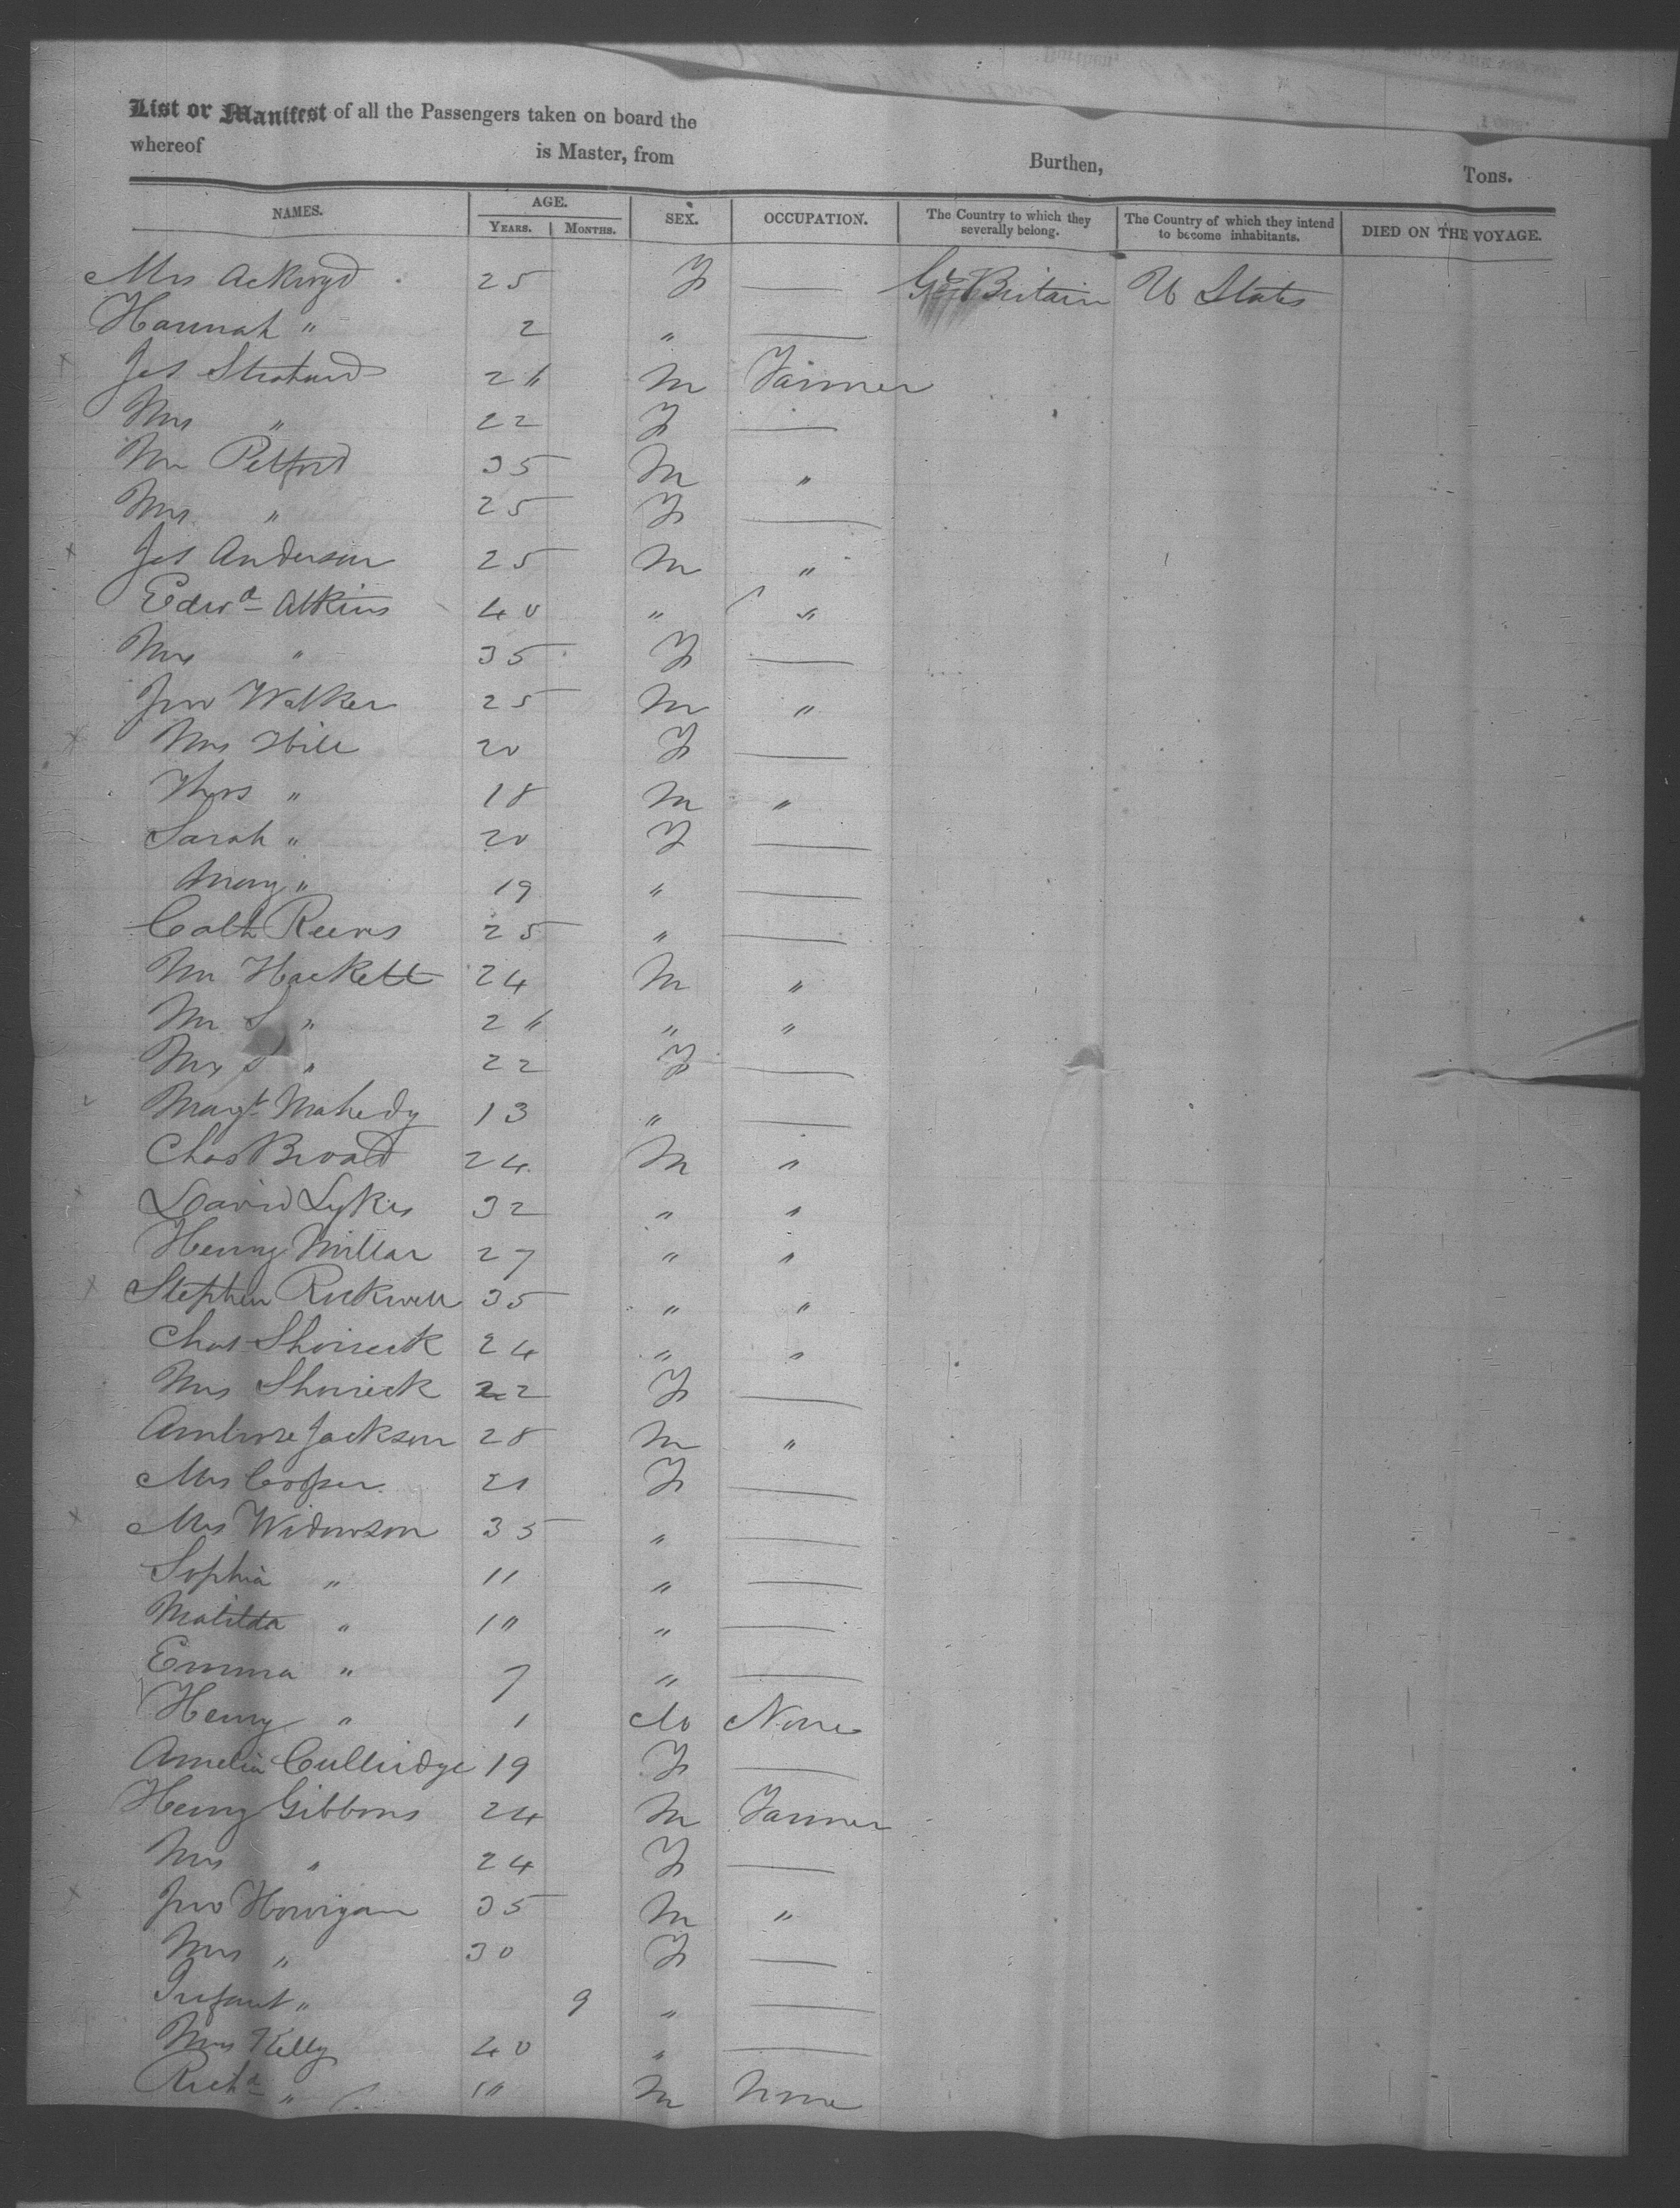 List or Manifest of all the Passengers taken on board the
whereof is Master, from Burthen, Tons.
NAMES. AGE. YEARS. MONTHS. SEX. OCCUPATION. The Country to which they severally belong. The Country of which they intend to become inhabitants. DIED ON THE VOYAGE.
Mrs Ackroyd 25 F — Gt Britain U States
Hannah " 2 " —
Jas 26 M Farmer
Mrs " 22 F —
Mr Petford 35 M "
Mrs " 25 F —
Jas Anderson 25 M "
Edwd Atkins 40 " "
Mrs " 35 F —
Jno Walker 25 M "
Mrs Hill 20 F —
Thos " 18 M "
Sarah " 20 F —
Mary " 19 " —
Cath Reeves 25 " —
Mr Hackett 24 M "
Mr S " 26 " "
Mrs S " 22 F —
Margt Mahedy 13 " —
Chas Broad 24 M "
David Sykes 32 " "
Henry Millar 27 " "
Stephen Rickwell 35 " "
Chas 24 " "
Mrs 22 F —
Ambrose Jackson 28 M "
Mrs Cooper 21 F —
Mrs Widowson 35 " —
Sophia " 11 " —
Matilda " 10 " —
Emma " 7 " —
Henry " 1 M None
Amelia Cullridge 19 F —
Henry Gibbons 24 M Farmer
Mrs " 24 F —
Jno Horrigan 35 M "
Mrs " 30 F —
Infant " 9 " —
Mrs Kelly 40 " —
Richd " 10 M None